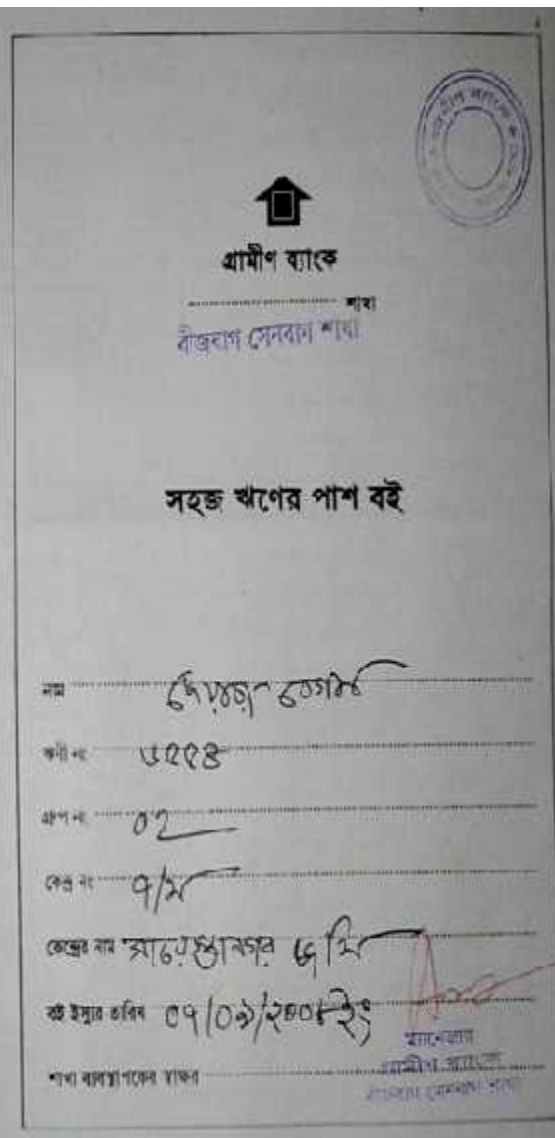 গ্রামীণ ব্যাংক
শাখা
বীজবাগ সেনবাগ শাখা
সহজ ঋণের পাশ বই
নাম বেগম
ঋণী নং ৬২২৪
গ্রুপ নং ০২
কেন্দ্র নং ৭/ম
কেন্দ্রের নাম
বই ইস্যুর তারিখ ০৭/০৯/২০০৮ইং
ম্যানেজার
শাখা ব্যবস্থাপকের স্বাক্ষর গ্রামীণ ব্যাংক
বীজবাগ সেনবাগ শাখা